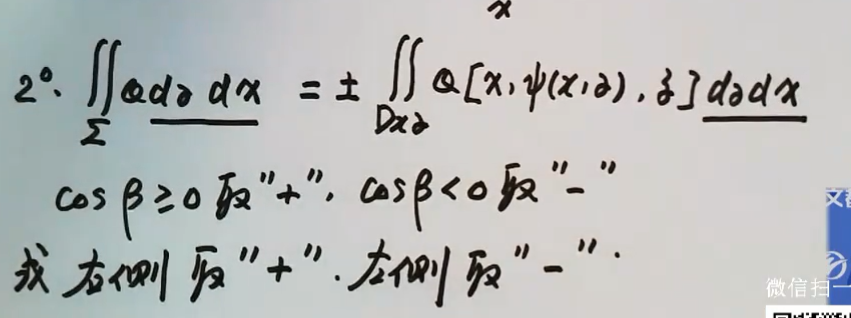 x
2°. ∬_Σ Q dz dx = ± ∬_Dxz Q[x, ψ(x,z), z] dz dx
cos β ≥ 0 取"+", cos β < 0 取"-"
或 右侧取"+". 左侧取"-".
微信扫一